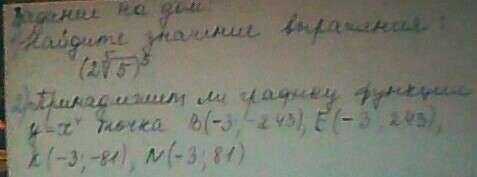 Задание на дом:
Найдите значение выражения:
(2√5)⁵
2) Принадлежит ли графику функции
y=x⁴ точка B(-3; -243), E(-3; 243),
K(-3; -81), N(-3; 81)